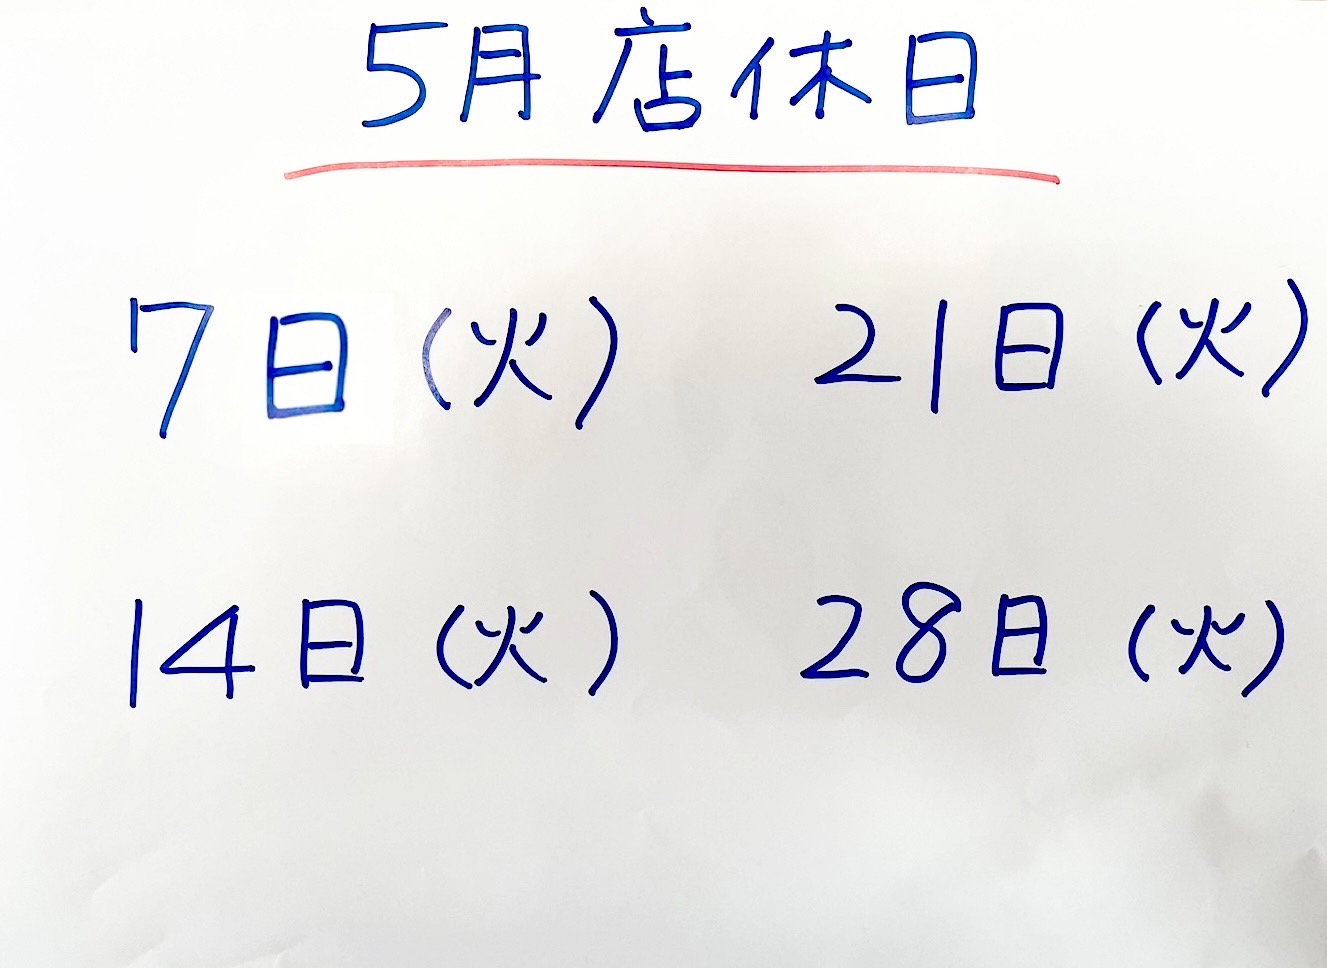 5月店休日
7日(火)
14日(火)
21日(火)
28日(火)